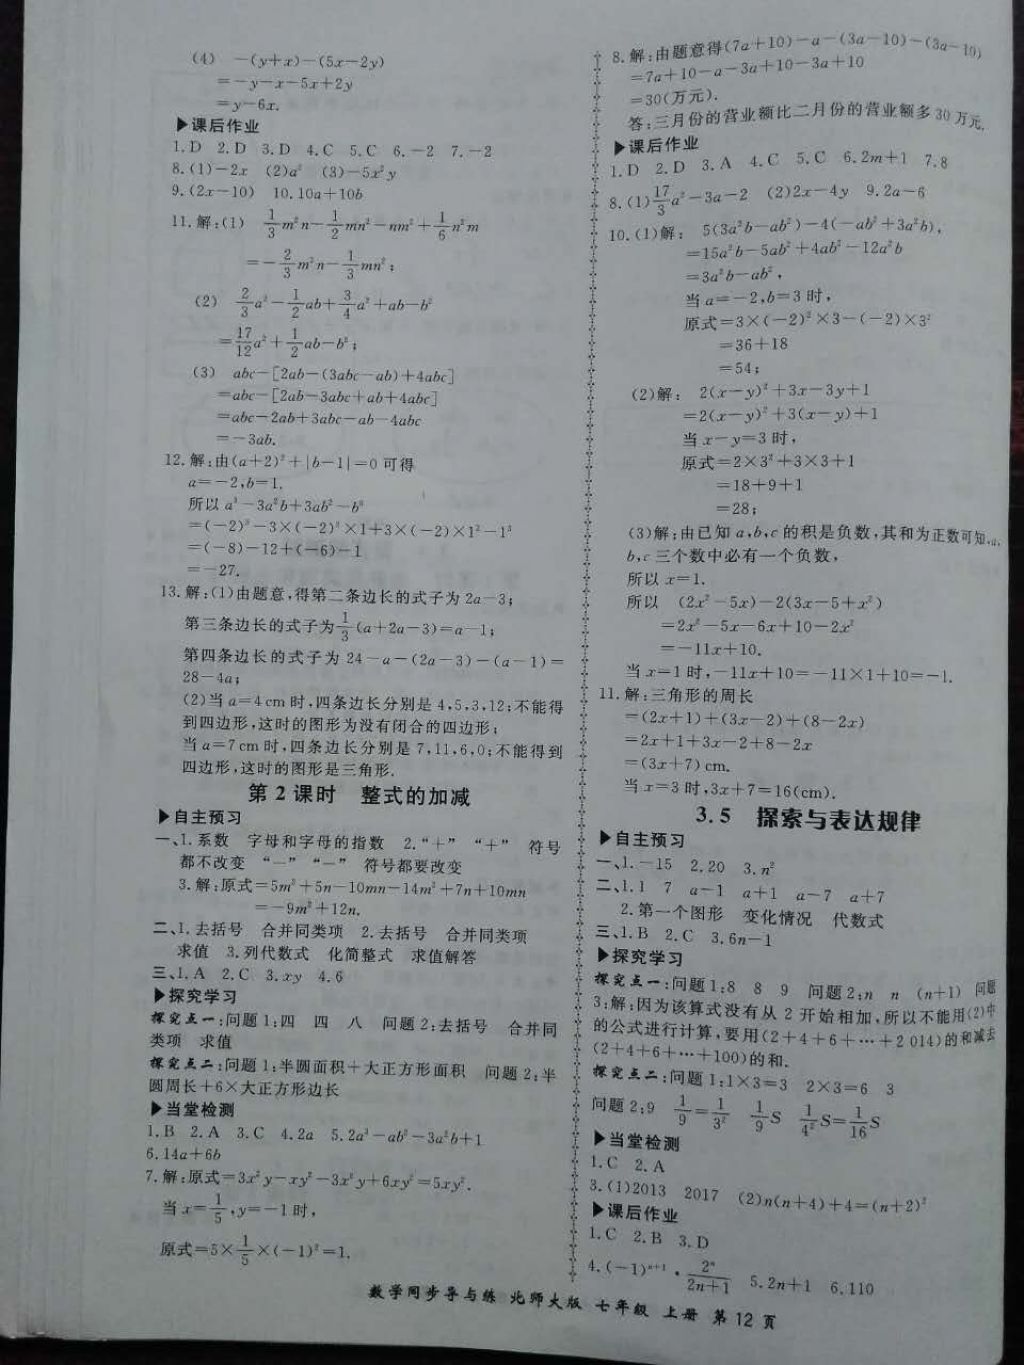 (4) −(y+x)−(5x−2y)
=−y−x−5x+2y
=y−6x.
▶课后作业
1.D 2.D 3.D 4.C 5.C 6.−2 7.−2
8.(1)−2x (2)a² (3)−5x²y
9.(2x−10) 10.10a+10b
11.解:(1) 1/3m²n−1/2mn²−nm²+1/6n²m
=−2/3m²n−1/3mn²;
(2) 2/3a²−1/2ab+3/4a²+ab−b²
=17/12a²+1/2ab−b²;
(3) abc−[2ab−(3abc−ab)+4abc]
=abc−[2ab−3abc+ab+4abc]
=abc−2ab+3abc−ab−4abc
=−3ab.
12.解:由(a+2)²+|b−1|=0可得
a=−2,b=1.
所以a³−3a²b+3ab²−b³
=(−2)³−3×(−2)²×1+3×(−2)×1²−1³
=(−8)−12+(−6)−1
=−27.
13.解:(1)由题意,得第二条边长的式子为2a−3;
第三条边长的式子为1/3(a+2a−3)=a−1;
第四条边长的式子为24−a−(2a−3)−(a−1)=
28−4a;
(2)当a=4cm时,四条边长分别是4,5,3,12;不能得
到四边形,这时的图形为没有闭合的四边形;
当a=7cm时,四条边长分别是7,11,6,0;不能得到
四边形,这时的图形是三角形.
第2课时 整式的加减
▶自主预习
一、1.系数 字母和字母的指数 2.“+” “+” 符号
都不改变 “−” “−” 符号都要改变
3.解:原式=5m²+5n−10mn−14m²+7n+10mn
=−9m²+12n.
二、1.去括号 合并同类项 2.去括号 合并同类项
求值 3.列代数式 化简整式 求值解答
三、1.A 2.C 3.xy 4.6
▶探究学习
探究点一:问题1:四 四 八 问题2:去括号 合并同
类项 求值
探究点二:问题1:半圆面积+大正方形面积 问题2:半
圆周长+6×大正方形边长
▶当堂检测
1.B 2.A 3.C 4.2a 5.2a³−ab²−3a²b+1
6.14a+6b
7.解:原式=3x²y−xy²−3x²y+6xy²=5xy².
当x=1/5,y=−1时,
原式=5×1/5×(−1)²=1.
8.解:由题意得(7a+10)−a−(3a−10)−(3a−10)
=7a+10−a−3a+10−3a+10
=30(万元).
答:三月份的营业额比二月份的营业额多30万元.
▶课后作业
1.D 2.D 3.A 4.C 5.C 6.2m+1 7.8
8.(1)17/3a²−3a−2 (2)2x−4y 9.2a−6
10.(1)解: 5(3a²b−ab²)−4(−ab²+3a²b),
=15a²b−5ab²+4ab²−12a²b
=3a²b−ab²,
当a=−2,b=3时,
原式=3×(−2)²×3−(−2)×3²
=36+18
=54;
(2)解: 2(x−y)²+3x−3y+1
=2(x−y)²+3(x−y)+1
当x−y=3时,
原式=2×3²+3×3+1
=18+9+1
=28;
(3)解:由已知a,b,c的积是负数,其和为正数可知,a,
b,c三个数中必有一个负数,
所以x=1.
所以 (2x²−5x)−2(3x−5+x²)
=2x²−5x−6x+10−2x²
=−11x+10.
当x=1时,−11x+10=−11×1+10=−1.
11.解:三角形的周长
=(2x+1)+(3x−2)+(8−2x)
=2x+1+3x−2+8−2x
=(3x+7)cm.
当x=3时,3x+7=16(cm).
3.5 探索与表达规律
▶自主预习
一、1.−15 2.20 3.n²
二、1.1 7 a−1 a+1 a−7 a+7
2.第一个图形 变化情况 代数式
三、1.B 2.C 3.6n−1
▶探究学习
探究点一:问题1:8 8 9 问题2:n n (n+1) 问题
3:解:因为该算式没有从2开始相加,所以不能用(2)中
的公式进行计算,要用(2+4+6+…+2014)的和减去
(2+4+6+…+100)的和.
探究点二:问题1:1×3=3 2×3=6 3
问题2:9 1/9=1/3² 1/9S 1/4²S=1/16S
▶当堂检测
1.C 2.A
3.(1)2013 2017 (2)n(n+4)+4=(n+2)²
▶课后作业
1.C 2.B 3.D
4.(−1)ⁿ⁺¹·2ⁿ/2n+1 5.2n+1 6.110
数学同步导与练 北师大版 七年级 上册 第12页